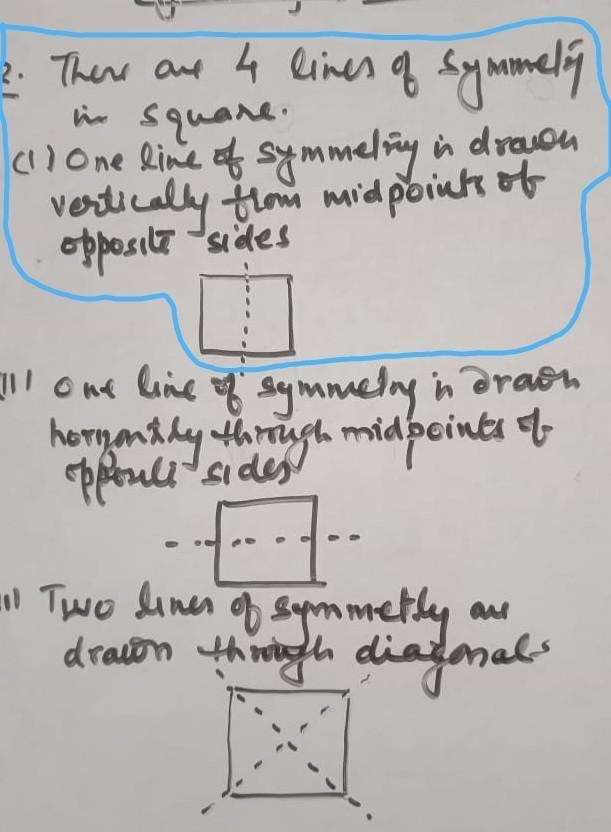 2. There are 4 lines of symmetry
in square.
(I) One line of symmetry is drawn
vertically from midpoints of
opposite sides
(II) One line of symmetry is drawn
horizontly through midpoints of
opposite sides
Two lines of symmetry are
drawn through diagonals